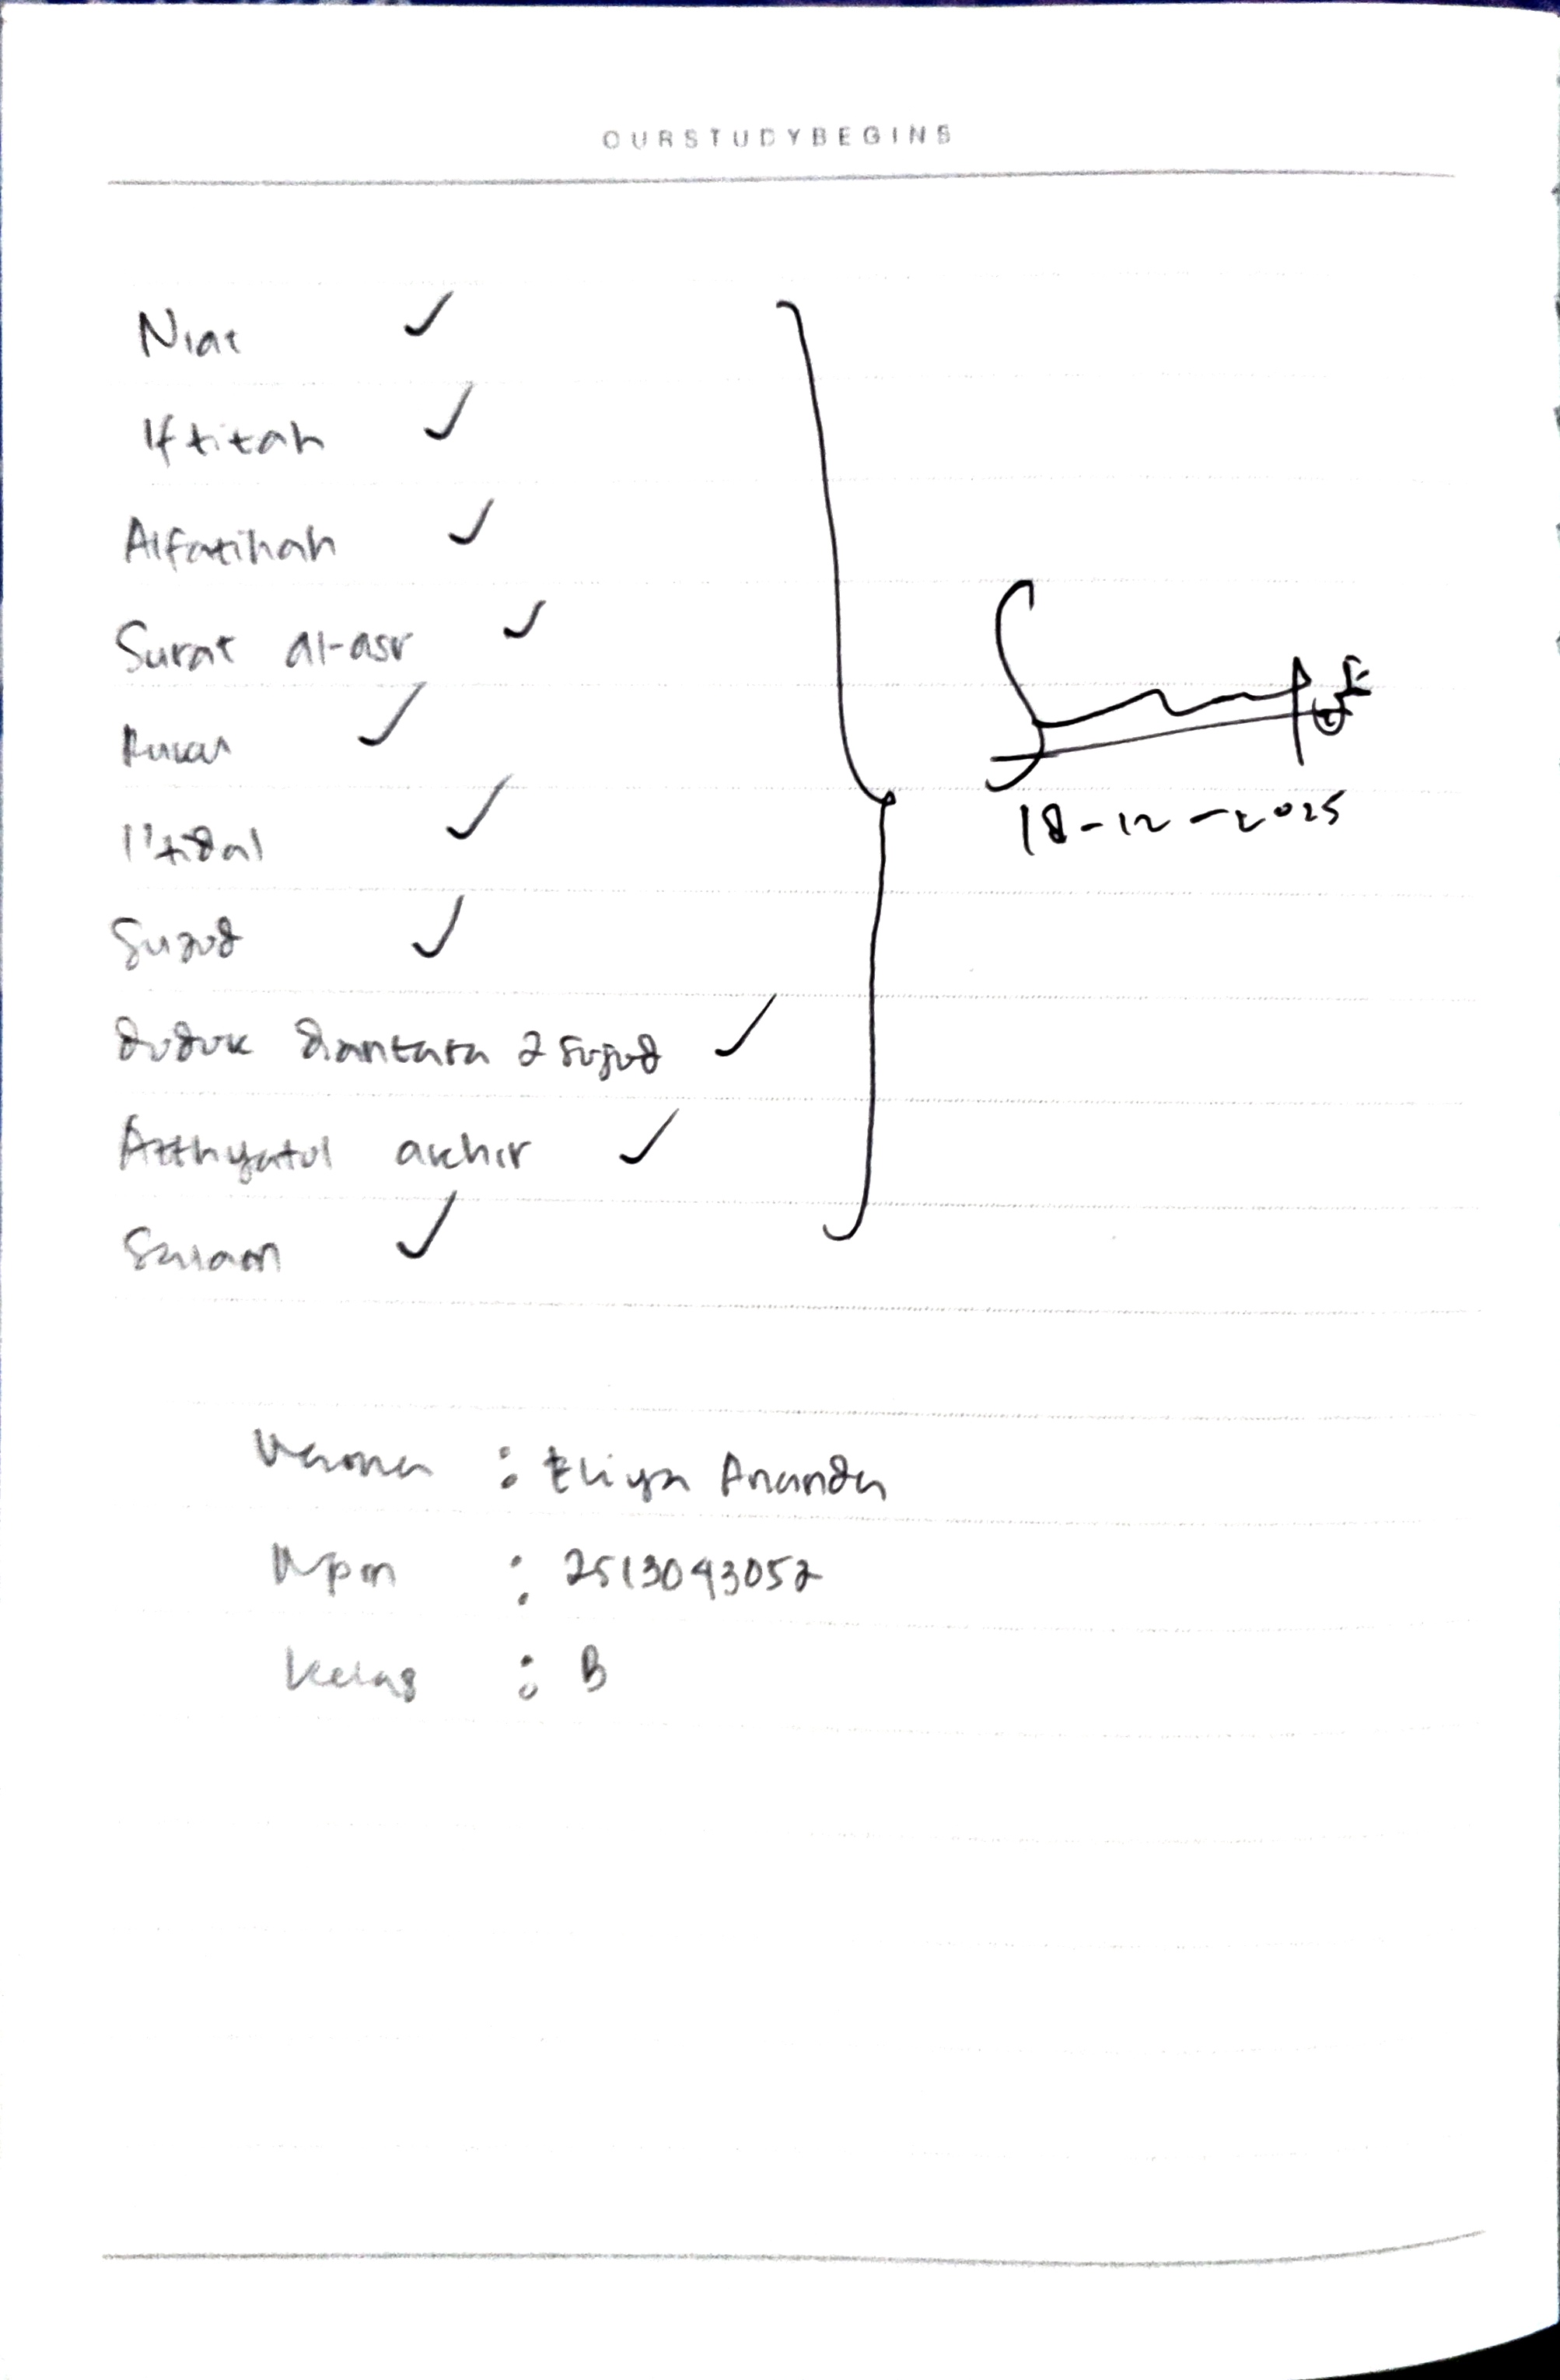 OURSTUDYBEGINS
Niat ✓
Iftitah ✓
Alfatihah ✓
Surat al-asr ✓
Rukuk ✓
I'tidal ✓
Sujud ✓
duduk diantara 2 sujud ✓
Atthyatul akhir ✓
Salam ✓
18-12-2025
Nama : Eliya Ananda
Npm : 2513043052
Kelas : B